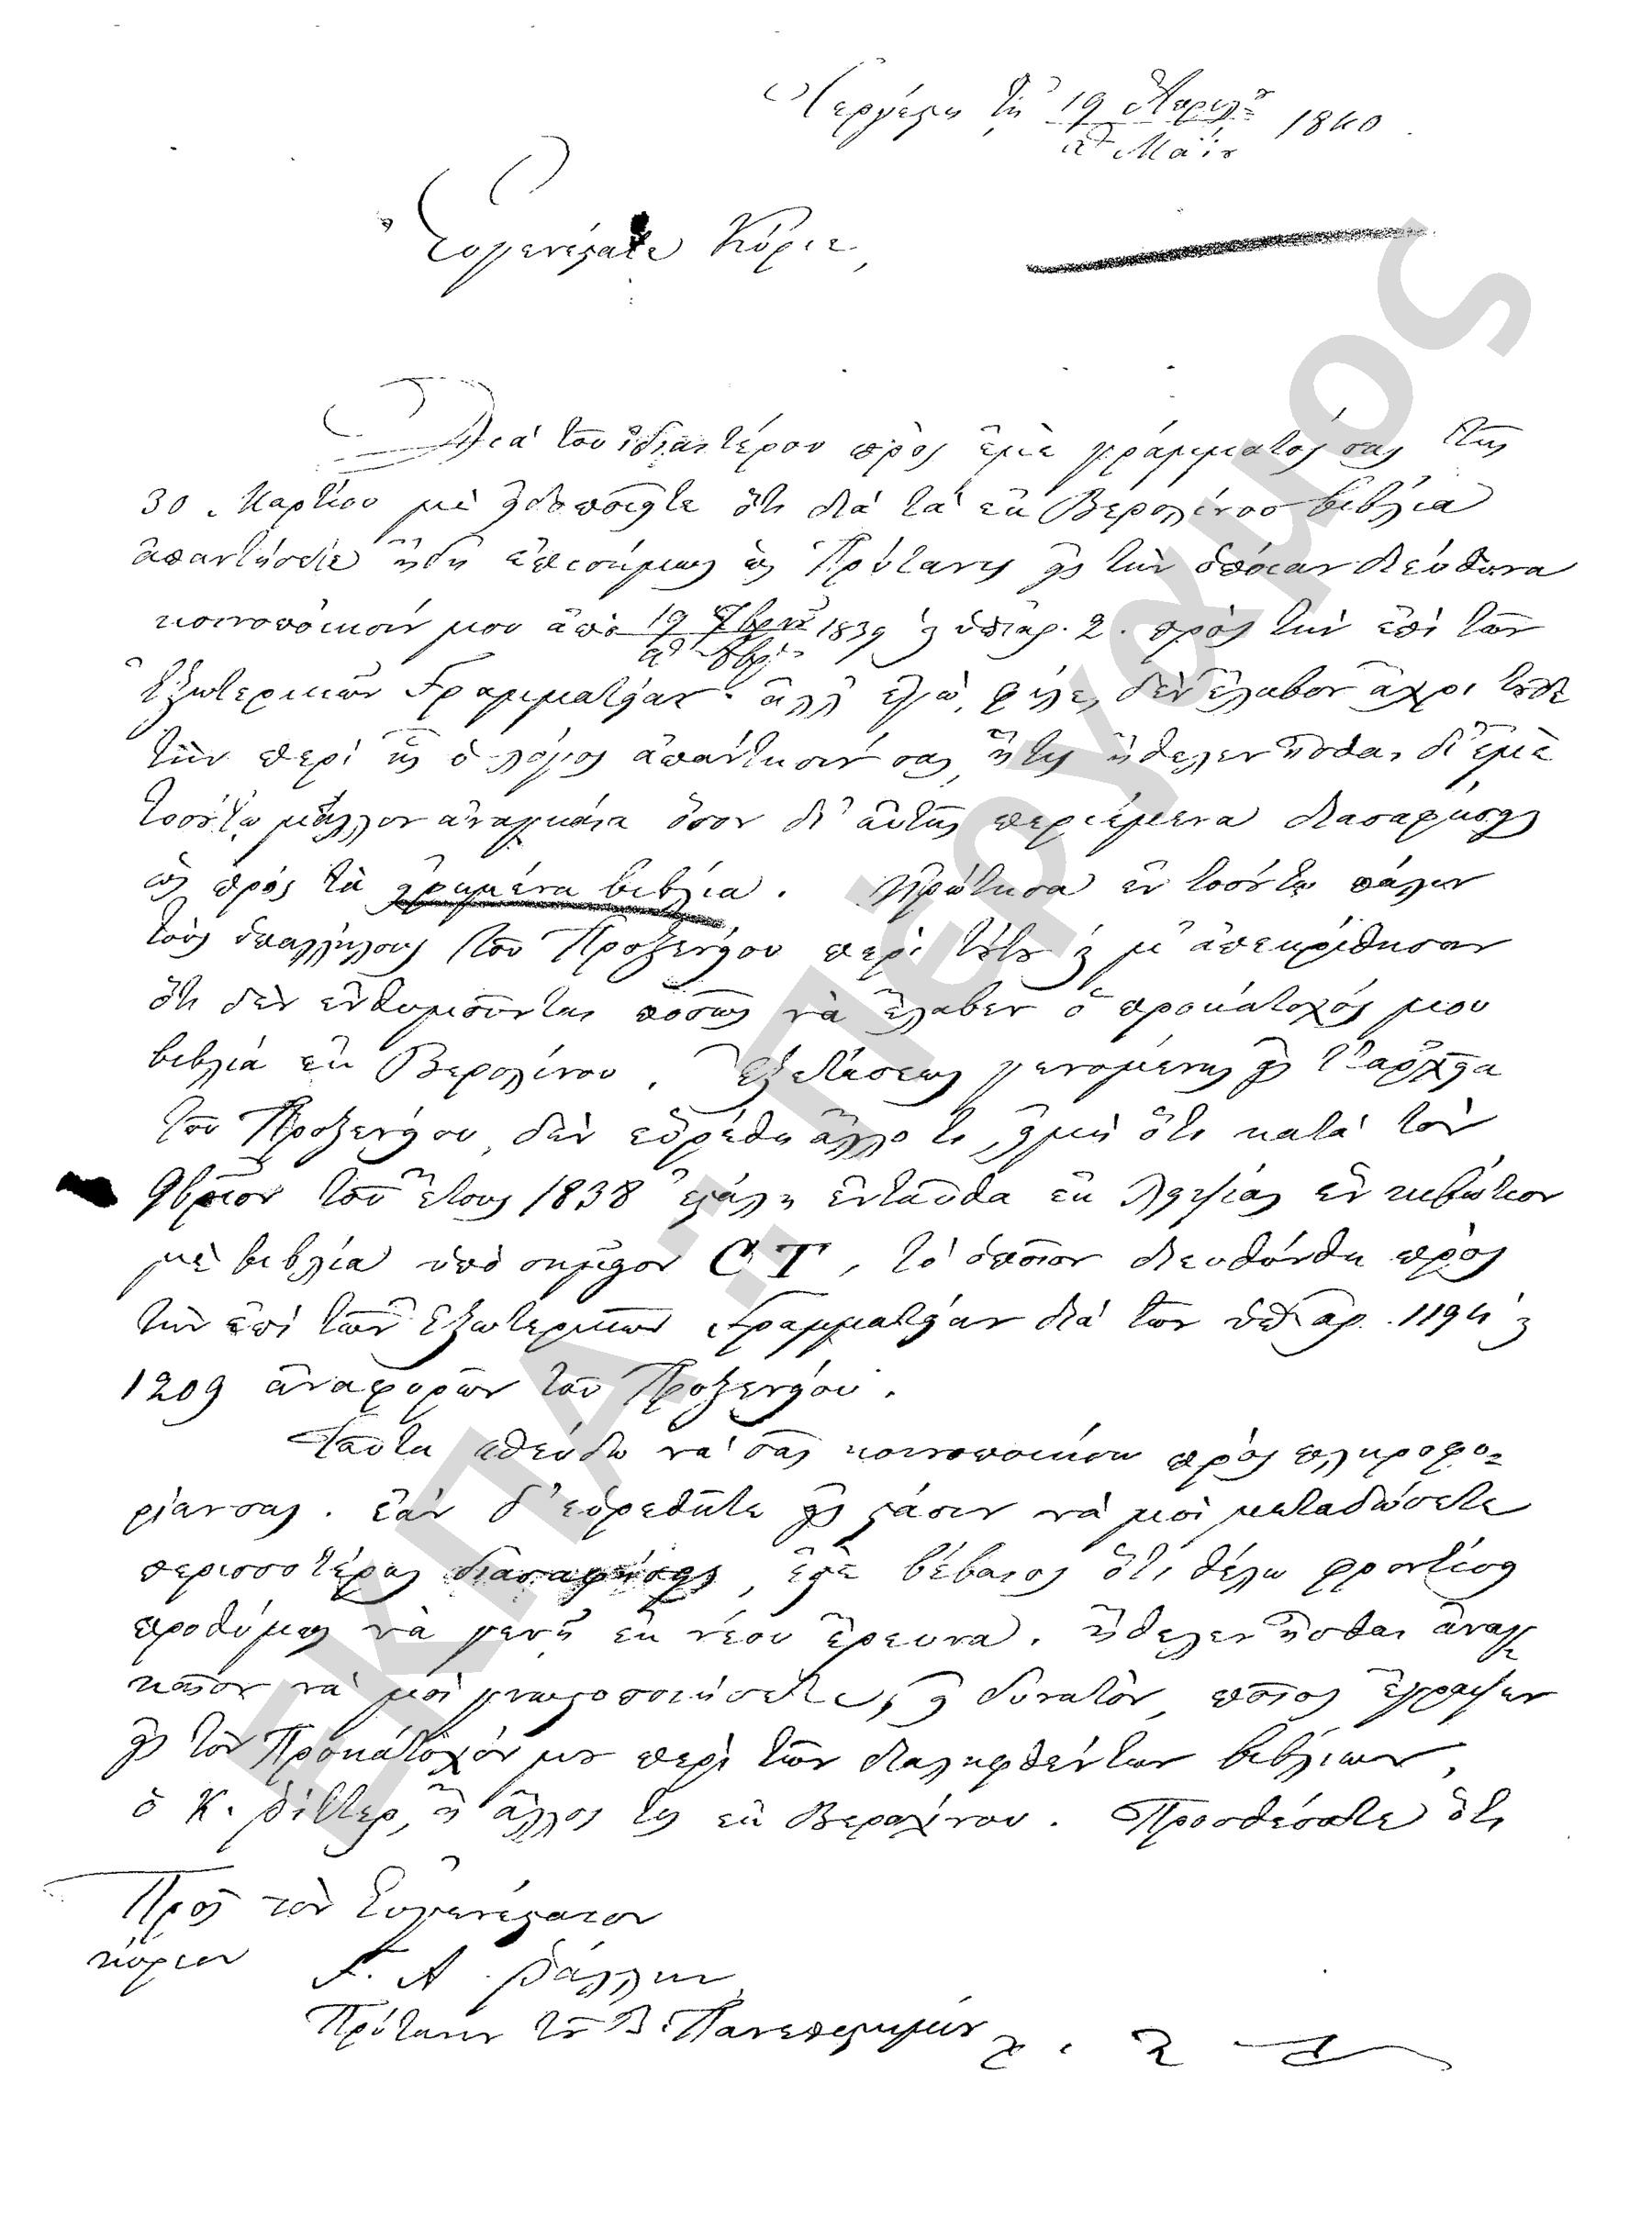 Τεργέστη τῇ 19 Ἀπριλίου / αῃ Μαΐου 1840.
Εὐγενέστατε Κύριε,
Διὰ τοῦ ἰδιαιτέρου πρὸς ἐμὲ γράμματός σας τῆς
30 Μαρτίου μὲ εἰδοποιεῖτε ὅτι διὰ τὰ ἐκ Βερολίνου βιβλία
ἀπαντήσετε ἤδη ἐπισήμως ὡς Πρύτανις εἰς τὴν ὁποίαν διεύθυνα
κοινοποίησίν μου ἀπὸ 19 7βρίου / αῃ 8βρίου 1839 καὶ ὑπ' ἀρ. 2. πρὸς τὴν ἐπὶ τῶν
Ἐξωτερικῶν Γραμματείαν· ἀλλ' ἐγώ, φίλε, δὲν ἔλαβον ἄχρι τοῦδε
τὴν περὶ ἧς ὁ λόγος ἀπάντησίν σας, ἥτις ἤθελεν εἶσθαι δι' ἐμὲ
τοσούτῳ μᾶλλον ἀναγκαία ὅσον δι' αὐτῆς περιέμενα διασαφήσεις
ὡς πρὸς τὰ εἰρημένα βιβλία. Ἠρώτησα ἐν τοσούτῳ πάλιν
τοὺς ὑπαλλήλους τοῦ Προξενείου περὶ τούτου καὶ μ' ἀπεκρίθησαν
ὅτι δὲν ἐνθυμοῦνται ποσῶς νὰ ἔλαβεν ὁ προκάτοχός μου
βιβλία ἐκ Βερολίνου. Ἐξετάσεως γενομένης εἰς τ' ἀρχεῖα
τοῦ Προξενείου, δὲν εὑρέθη ἄλλο τι, εἰμὴ ὅτι κατὰ τὸν
9βριον τοῦ ἔτους 1838 ἐστάλη ἐνταῦθα ἐκ Λειψίας ἓν κιβώτιον
μὲ βιβλία ὑπὸ σημεῖον C T, τὸ ὁποῖον διευθύνθη πρὸς
τὴν ἐπὶ τῶν Ἐξωτερικῶν Γραμματείαν διὰ τῶν ὑπ' ἀρ. 1194 καὶ
1209 ἀναφορῶν τοῦ Προξενείου.
Ταῦτα σπεύδω νὰ σᾶς κοινοποιήσω πρὸς πληροφο-
ρίαν σας. ἐὰν δ' εὑρεθῆτε εἰς στάσιν νὰ μοὶ μεταδώσετε
περισσοτέρας διασαφήσεις, ἔστε βέβαιος ὅτι θέλω φροντίσει
προθύμως νὰ γενῇ ἐκ νέου ἔρευνα. ἤθελεν εἶσθαι ἀναγ-
καῖον νὰ μοὶ γνωστοποιήσετε, εἰ δυνατόν, ποῖος ἔγραψεν
εἰς τὸν Προκάτοχόν μου περὶ τῶν διαληφθέντων βιβλίων,
ὁ Κ. Ῥίττερ, ἢ ἄλλος τις ἐκ Βερολίνου. Προσθέσατε ὅτι
Πρὸς τὸν Εὐγενέστατον
κύριον Γ. Α. Ῥάλλην
Πρύτανιν τοῦ Β. Πανεπιστημίου
ΕΚΠΑ - Πέργαμος